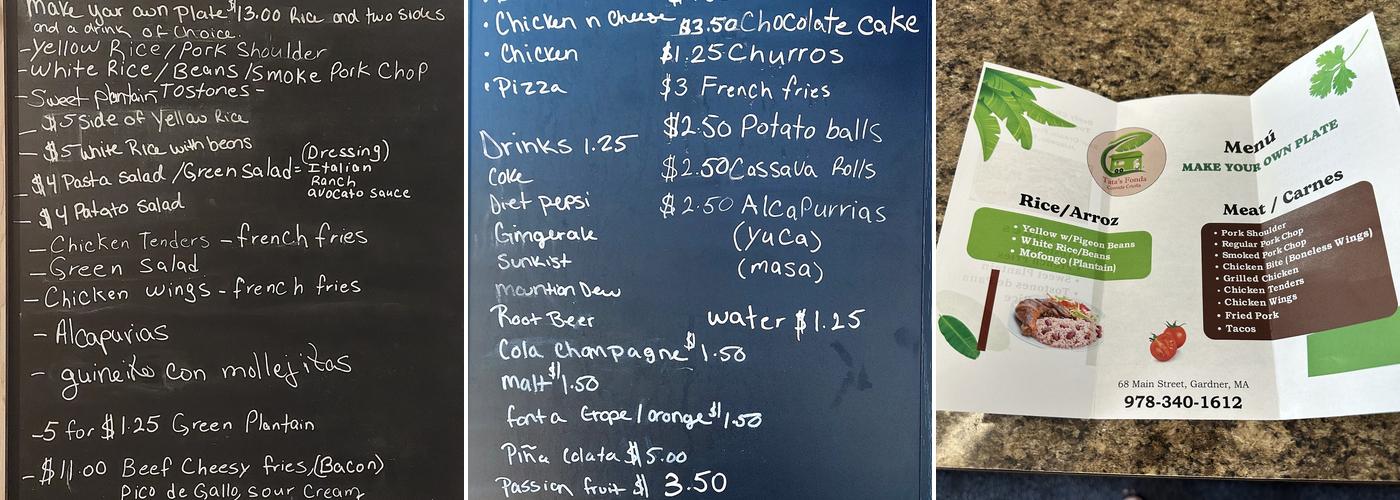 Make your own plate $13.00 Rice and two sides
and a drink of choice.
-Yellow Rice/Pork Shoulder
-White Rice/Beans/Smoke Pork Chop
-Sweet plantain-Tostones-
- $5 side of Yellow Rice
- $5 white Rice with beans
- $4 Pasta salad/Green Salad= (Dressing)
Italian
Ranch
avocato sauce
- $4 Potato salad
-Chicken Tenders - french fries
-Green Salad
-Chicken wings - french fries
- Alcapurias
- guineito con mollejitas
-5 for $1.25 Green Plantain
-$11.00 Beef Cheesy fries/(Bacon)
pico de Gallo, sour Cream
• Chicken n Cheese
• Chicken
• Pizza
$3.50 Chocolate cake
$1.25 Churros
$3 French fries
$2.50 Potato balls
$2.50 Cassava Rolls
$2.50 Alcapurrias
(yuca)
(masa)
Drinks 1.25
Coke
Diet pepsi
Gingerale
Sunkist
mountion Dew
Root Beer
water $1.25
Cola Champagne $1.50
malt $1.50
fonta Grope/orange $1.50
Piña Colata $5.00
Passion fruit $ 3.50
Tata's Fonda
Comida Criolla
Menú
MAKE YOUR OWN PLATE
Rice/Arroz
• Yellow w/Pigeon Beans
• White Rice/Beans
• Mofongo (Plantain)
Meat / Carnes
• Pork Shoulder
• Regular Pork Chop
• Smoked Pork Chop
• Chicken Bite (Boneless Wings)
• Grilled Chicken
• Chicken Tenders
• Chicken Wings
• Fried Pork
• Tacos
68 Main Street, Gardner, MA
978-340-1612